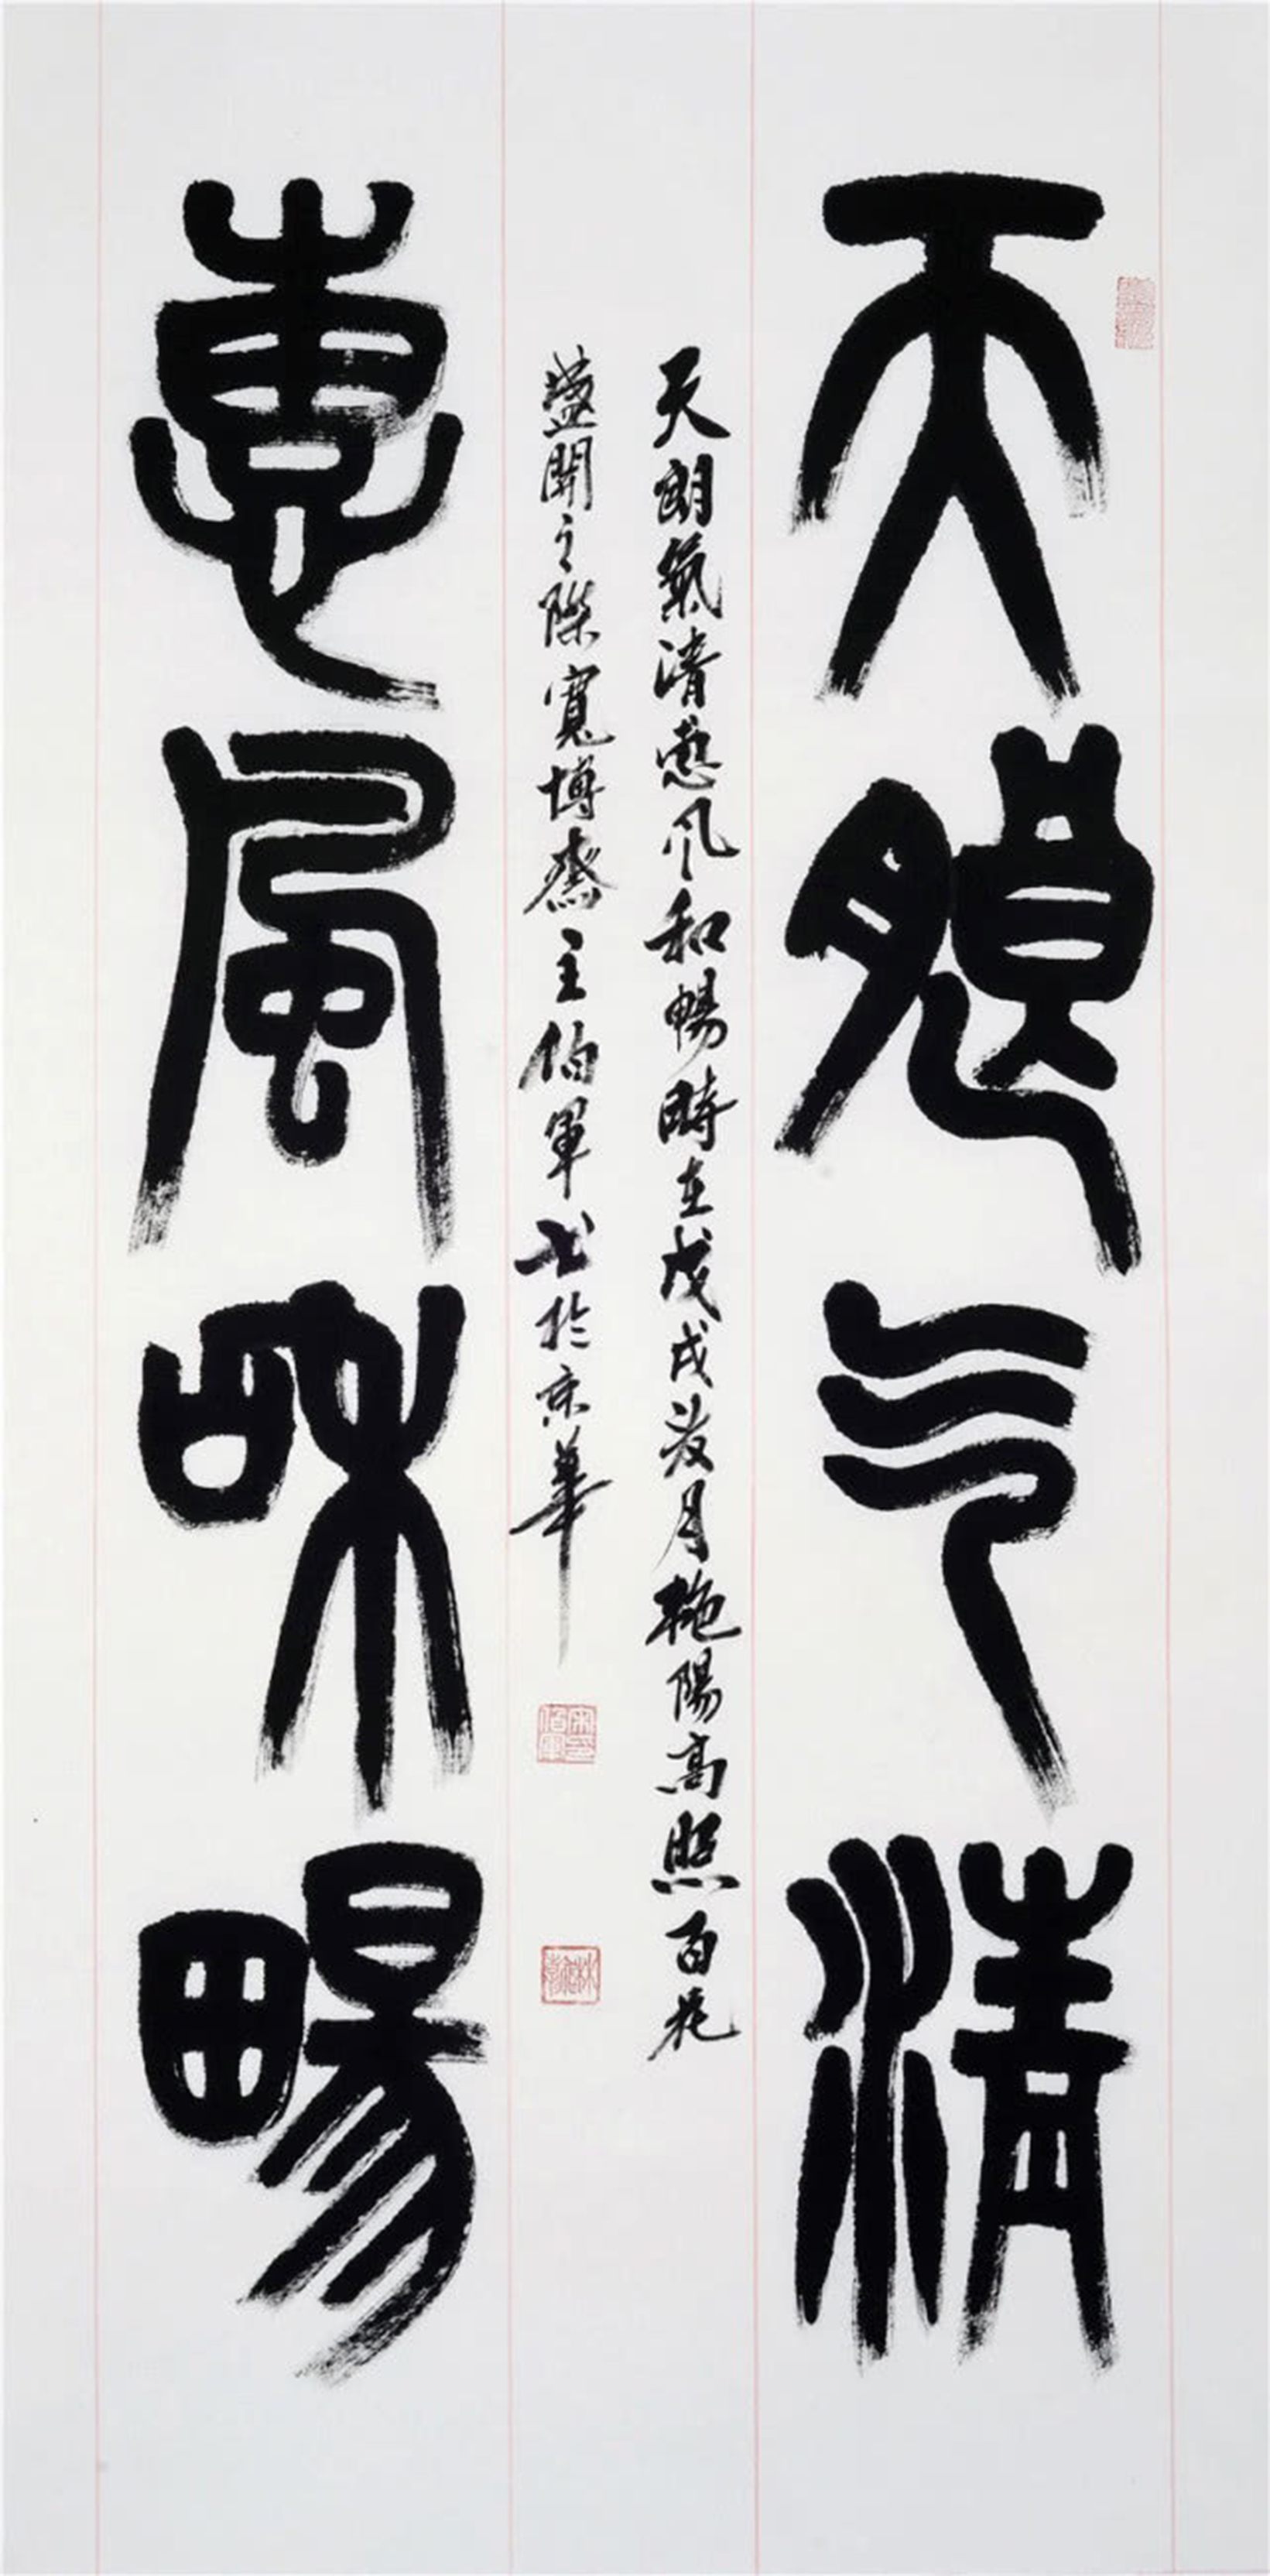 天朗气清
天朗氣清惠风和暢時在戊戌月艳陽高照百花
盛開之際寬博齋主伯軍书於京華
惠風咊畼